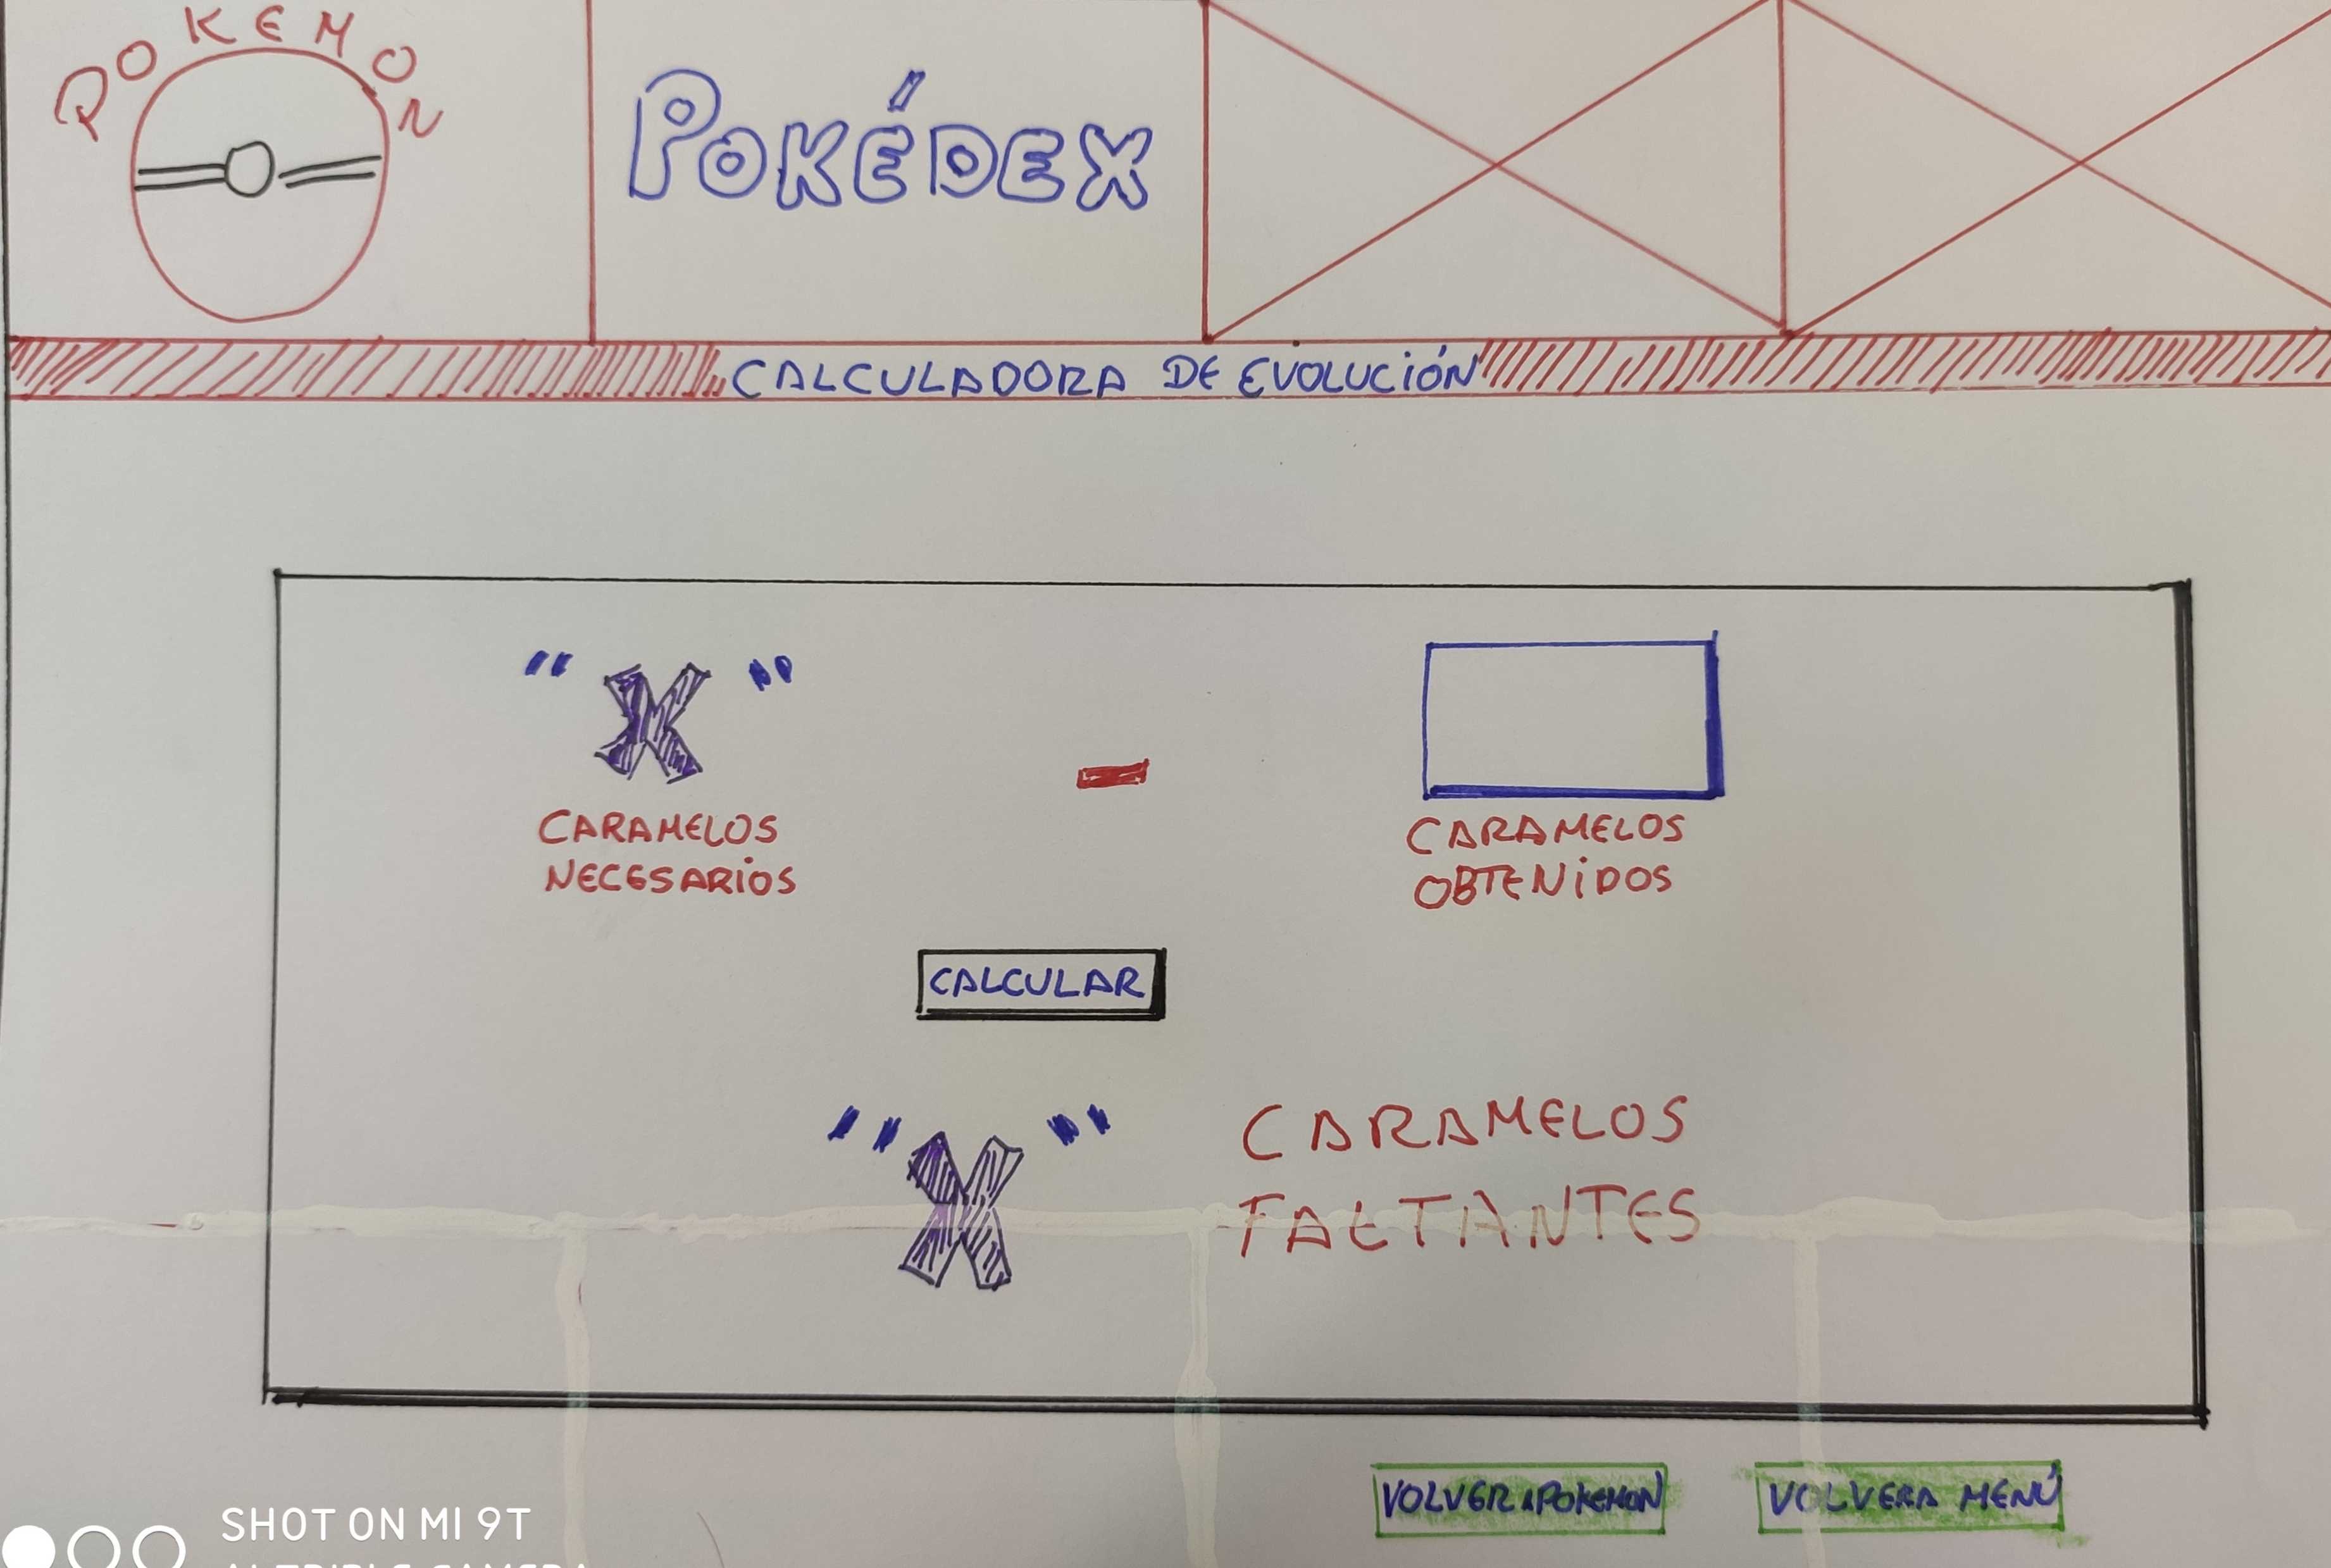 POKEMON
POKÉDEX
CALCULADORA DE EVOLUCIÓN
"X"
CARAMELOS
NECESARIOS
-
CARAMELOS
OBTENIDOS
CALCULAR
"X"
CARAMELOS
FALTANTES
VOLVER A POKEMON
VOLVER A MENÚ
SHOT ON MI 9T
AI TRIPLE CAMERA